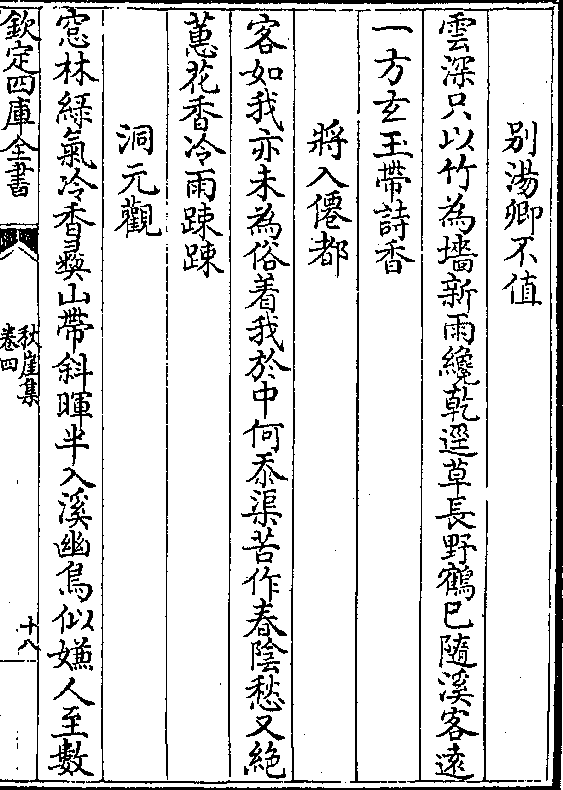 别湯卿不值
雲深只以竹為墻新雨纔乾逕草長野鶴已隨溪客逺
一方玄玉帶詩香
將入僊都
客如我亦未為俗着我於中何忝渠苦作春陰愁又絶
蕙花香冷雨踈踈
洞元觀
窓林緑氣冷香彛山帶斜暉半入溪幽鳥似嫌人至數
欽定四庫全書
秋崖集
卷四
十八